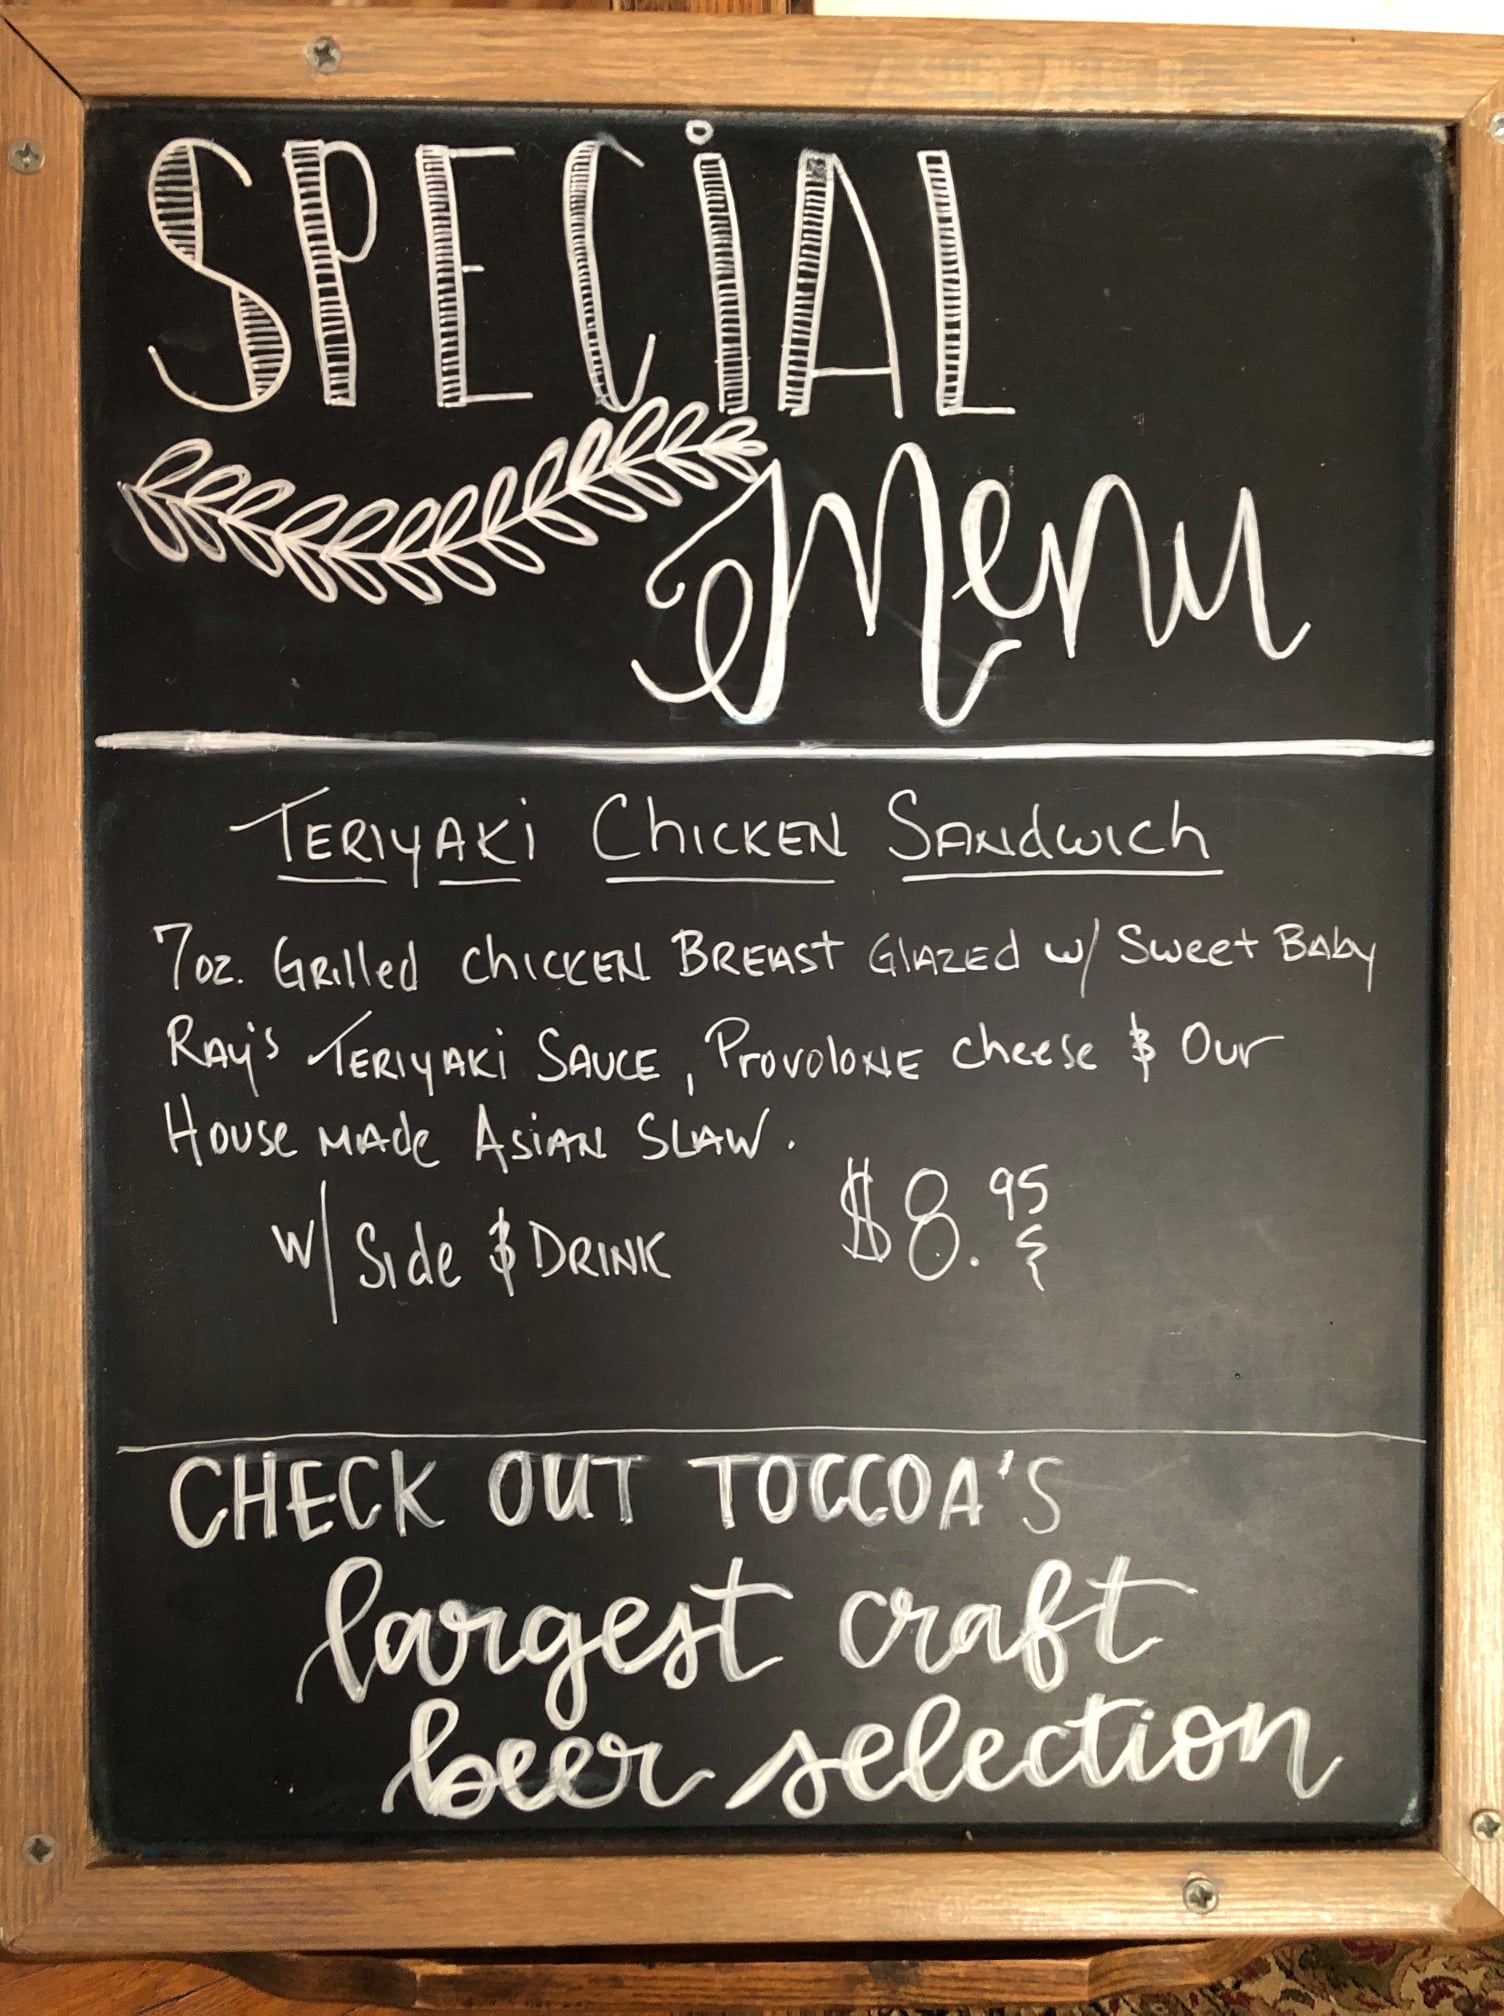 SPECiAL
Menu
TERIYAKi CHICKEN SANdwich
7oz. GRilled CHICKEN BREAST GLAZED w/ Sweet BAby
RAy's TERIYAKi SAUCE, PROVOLONE cheese & Our
HOUSE MADE ASiAN SLAW.
w/ Side & DRINK $8.95
CHECK OUT TOCCOA'S
largest craft
beer selection